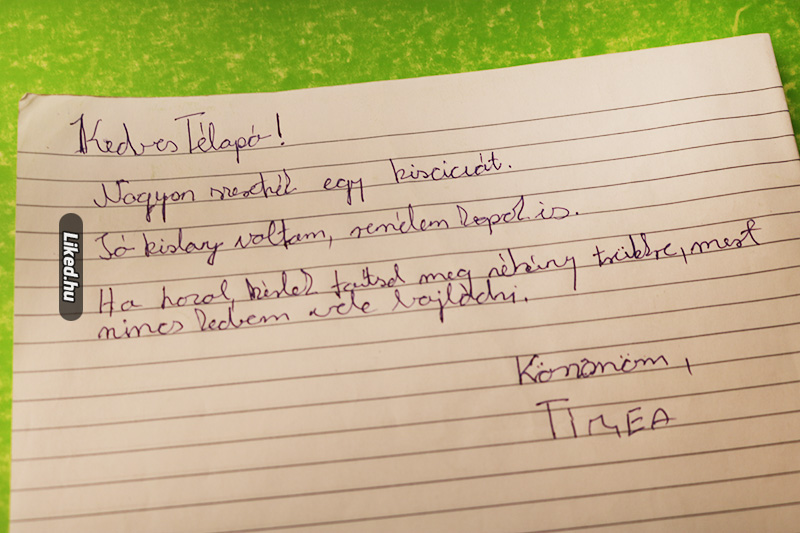 Kedves Télapó!
Nagyon szeretnék egy kiscicát.
Jó kislány voltam, remélem kapok is.
Ha hozol, kérlek tanítsd meg néhány trükkre, mert
nincs kedvem vele bajlódni.
Köszönöm,
TIMEA
Liked.hu